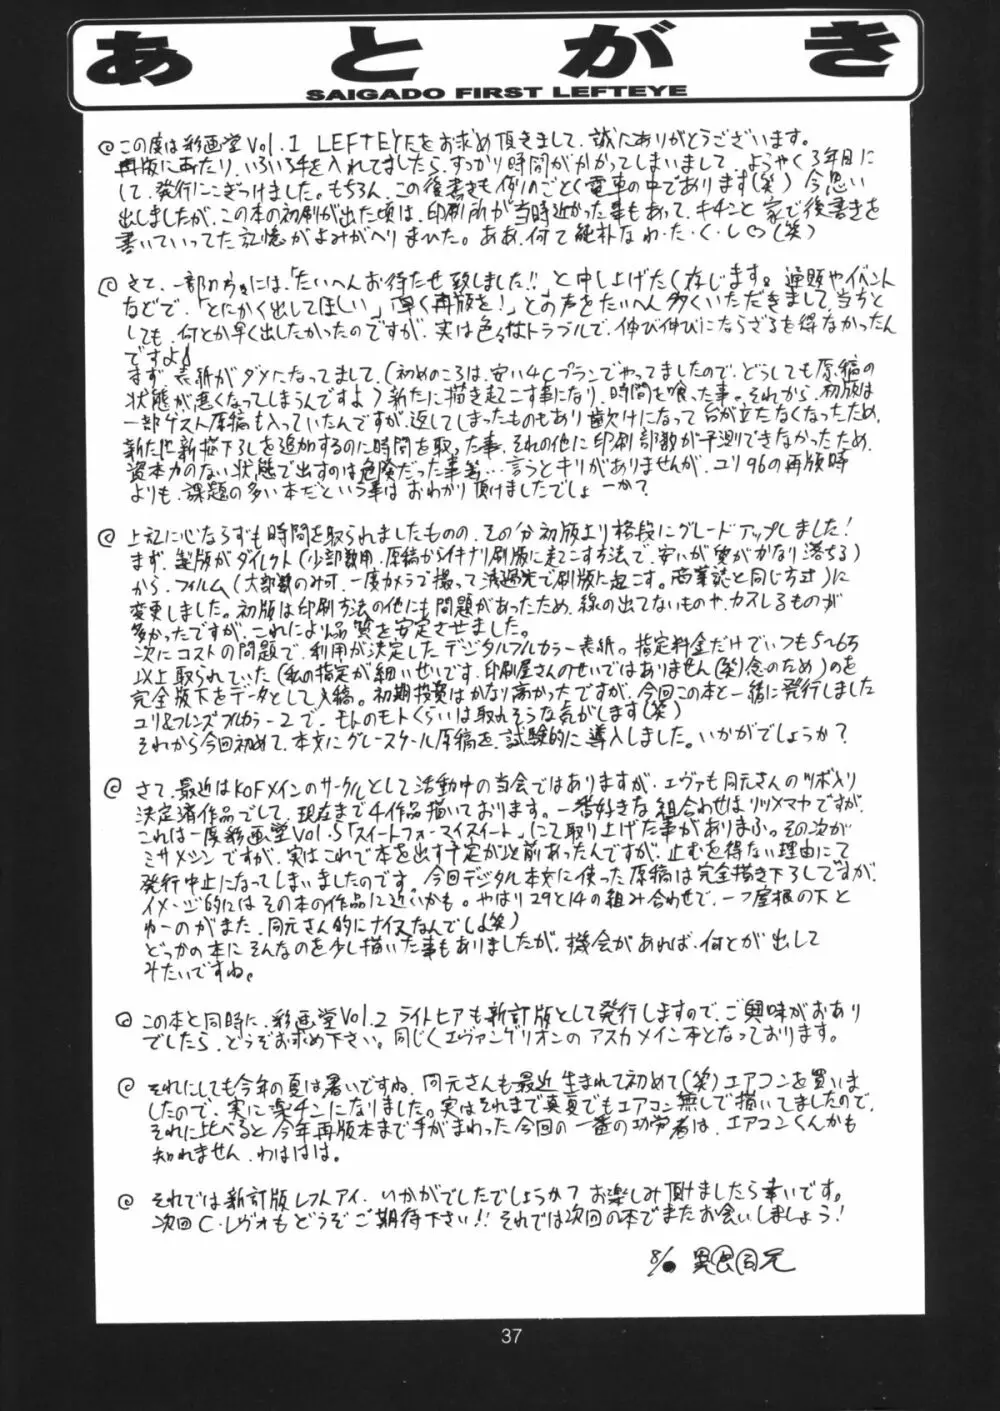 あとがき
SAIGADO FIRST LEFTEYE
この度は彩画堂Vol.1 LEFTEYEをお求め頂きまして、誠にありがとうございます。
再版にあたり、いろいろ手を入れてましたら、すっかり時間がかかってしまいまして、ようやく3年目に
して、発行にこぎつけました。もちろん、この後書きも例のごとく電車の中であります(笑) 今思い
出しましたが、この本の初刷が出た頃は、印刷所が当時近かった事もあって、キチンと家で後書きを
書いていってた記憶がよみがえりまひた。ああ、何て純朴なわ・た・く・し♡(笑)
さて、一部の方々には、「たいへんお待たせ致しました!!」と申し上げたく存じます。通販やイベント
などで、「とにかく出してほしい」「早く再版を!」との声をたいへん多くいただきまして、当方と
しても、何とか早く出したかったのですが、実は色々なトラブルで、伸び伸びにならざるを得なかったん
ですよ♪
まず、表紙がダメになってまして、(初めのころは、安い4Cプランでやってましたので、どうしても原稿の
状態が悪くなってしまうんですよ)新たに描き起こす事になり、時間を喰った事。それから、初版は
一部ゲスト原稿も入っていたんですが、返してしまったものもあり歯欠けになって台が立たなくなったため、
新たに新描下ろしを追加するのに時間を取った事、それの他に印刷部数が予測できなかったため、
資本力のない状態で出すのは危険だった事等…言うとキリがありませんが、ユリ96の再版時
よりも、課題の多い本だという事はおわかり頂けましたでしょーか?
上記に心ならずも時間を取られましたものの、その分初版より格段にグレードアップしました!
まず、製版がダイレクト(少部数用、原稿からイキナリ刷版に起こす方法で、安いが質がかなり落ちる)
から、フィルム(大部数のみ可、一度カメラで撮って濃過先で刷版に起こす。商業誌と同じ方式)に
変更しました。初版は印刷方法の他にも問題があったため、線の出てないものや、カスレるものが
多かったですが、これにより品質を安定させました。
次にコストの問題で、利用が決定したデジタルフルカラー表紙。指定料金だけでいつも5〜6万
以上取られていた(私の指定が細いせいです、印刷屋さんのせいではありません(笑)念のため)のを
完全版下をデータとして入稿。初期投資はかなり高かったですが、今回この本と一緒に発行しました
ユリ&フレンズフルカラー2で、モトのモトくらいは取れそうな気がします(笑)
それから今回初めて、本文にグレースケール原稿を、試験的に導入しました。いかがでしょうか?
さて、最近はKOFメインのサークルとして活動中の当会ではありますが、エヴァも同元さんのツボ入り
決定済作品でして、現在まで4作品描いております。一番好きな組合わせはリツ×マヤですが、
これは一度彩画堂Vol.5「スイートフォーマイスイート」にて取り上げた事がありまふ。その次が
ミサ×シンですが、実はこれで本を出す予定が以前あったんですが、止むを得ない理由にて
発行中止になってしまいましたのです。今回デジタル本文に使った原稿は完全描き下ろしですが、
イメージ的にはその本の作品に近いかも。やはり29と14の組み合わせで、一つ屋根の下と
ゆーのがまた、同元さん的にナイスなんでしょ(笑)
どっかの本にそんなのを少し描いた事もありましたが、機会があれば、何とか出して
みたいですね。
この本と同時に、彩画堂Vol.2 ライトヒアも新訂版として発行しますので、ご興味がおあり
でしたら、どうぞお求め下さい。同じくエヴァンゲリオンのアスカメイン本となっております。
それにしても今年の夏は暑いですね、同元さんも最近生まれて初めて(笑)エアコンを買いま
したので、実に楽チンになりました。実はそれまで真夏でもエアコン無しで描いてましたので、
それに比べると今年再版本まで手がまわった今回の一番の功労者は、エアコンくんかも
知れません、わははは。
それでは新訂版レフトアイ、いかがでしたでしょうか? お楽しみ頂けましたら幸いです。
次回C・レヴォもどうぞご期待下さい!! それでは次回の本でまたお会いしましょう!
37